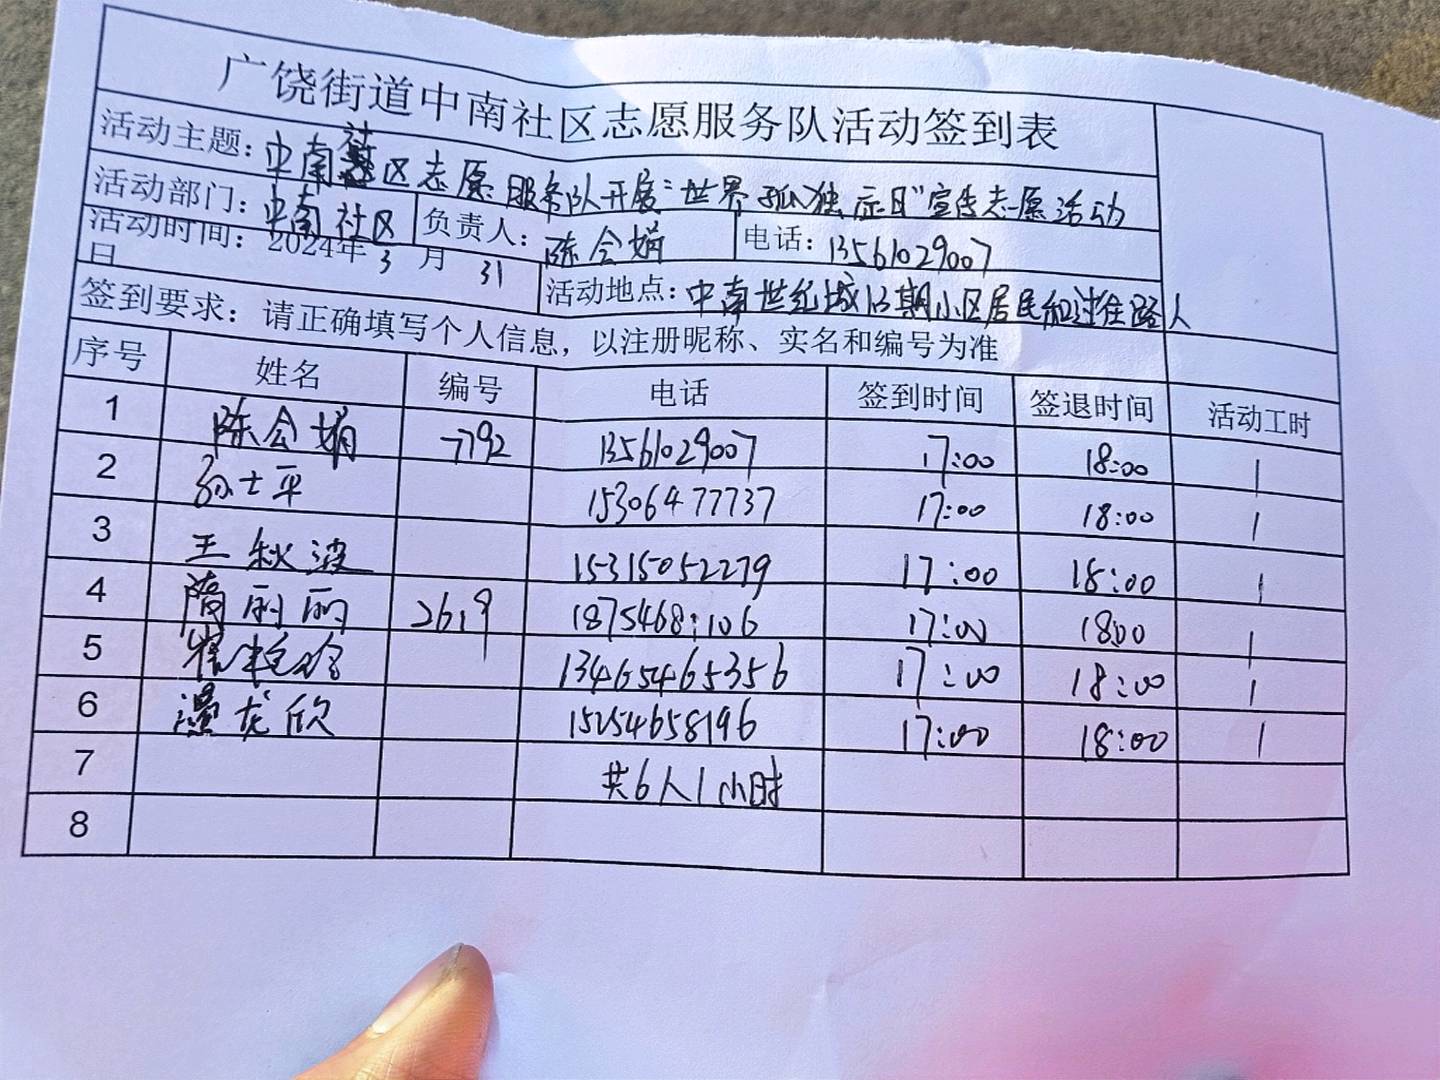 广饶街道中南社区志愿服务队活动签到表
活动主题：中南社区志愿服务队开展“世界孤独症日”宣传志愿活动
活动部门：中南社区 负责人：陈会娟 电话：13561029007
活动时间：2024年3月31
日 活动地点：中南世纪城13期小区居民和过往路人
签到要求：请正确填写个人信息，以注册昵称、实名和编号为准
序号 姓名 编号 电话 签到时间 签退时间 活动工时
1 陈会娟 7792 13561029007 17:00 18:00 1
2 孙士平 15306477737 17:00 18:00 1
3 王秋波 15315052279 17:00 18:00 1
4 隋丽丽 2619 18754681106 17:00 18:00 1
5 崔 13465465356 17:00 18:00 1
6 龙欣 15254658196 17:00 18:00 1
7 共6人1小时
8